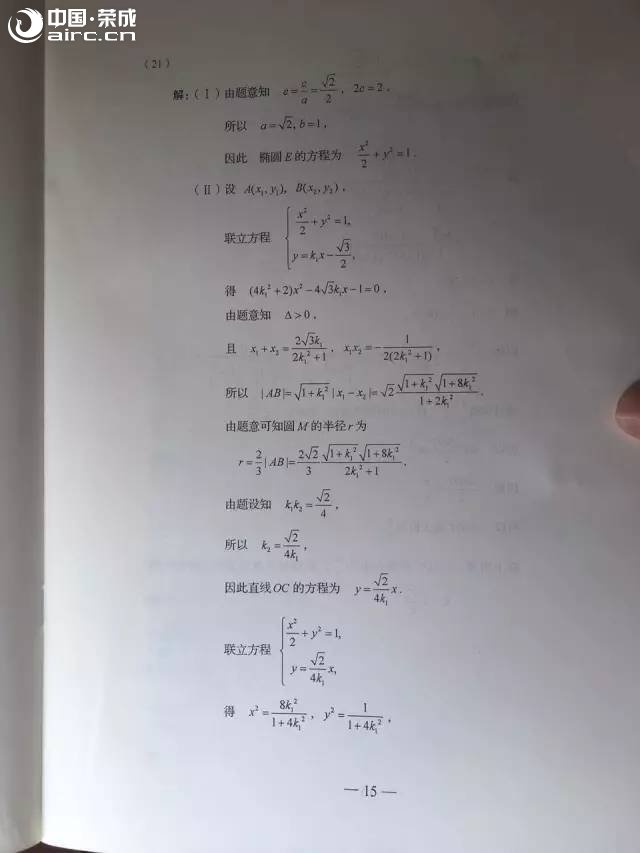 中国·荣成
airc.cn
(21)
解:(Ⅰ)由题意知 e=c/a=√2/2, 2c=2,
所以 a=√2, b=1,
因此 椭圆E的方程为 x²/2+y²=1.
(Ⅱ)设 A(x₁,y₁), B(x₂,y₂),
联立方程 { x²/2+y²=1, y=k₁x-√3/2,
得 (4k₁²+2)x²-4√3k₁x-1=0,
由题意知 Δ>0,
且 x₁+x₂=2√3k₁/(2k₁²+1), x₁x₂=-1/(2(2k₁²+1)),
所以 |AB|=√(1+k₁²)|x₁-x₂|=√2 √(1+k₁²)√(1+8k₁²)/(1+2k₁²).
由题意可知圆M的半径r为
r=2/3|AB|=2√2/3 √(1+k₁²)√(1+8k₁²)/(2k₁²+1).
由题设知 k₁k₂=√2/4,
所以 k₂=√2/(4k₁),
因此直线OC的方程为 y=√2/(4k₁)x.
联立方程 { x²/2+y²=1, y=√2/(4k₁)x,
得 x²=8k₁²/(1+4k₁²), y²=1/(1+4k₁²),
— 15 —